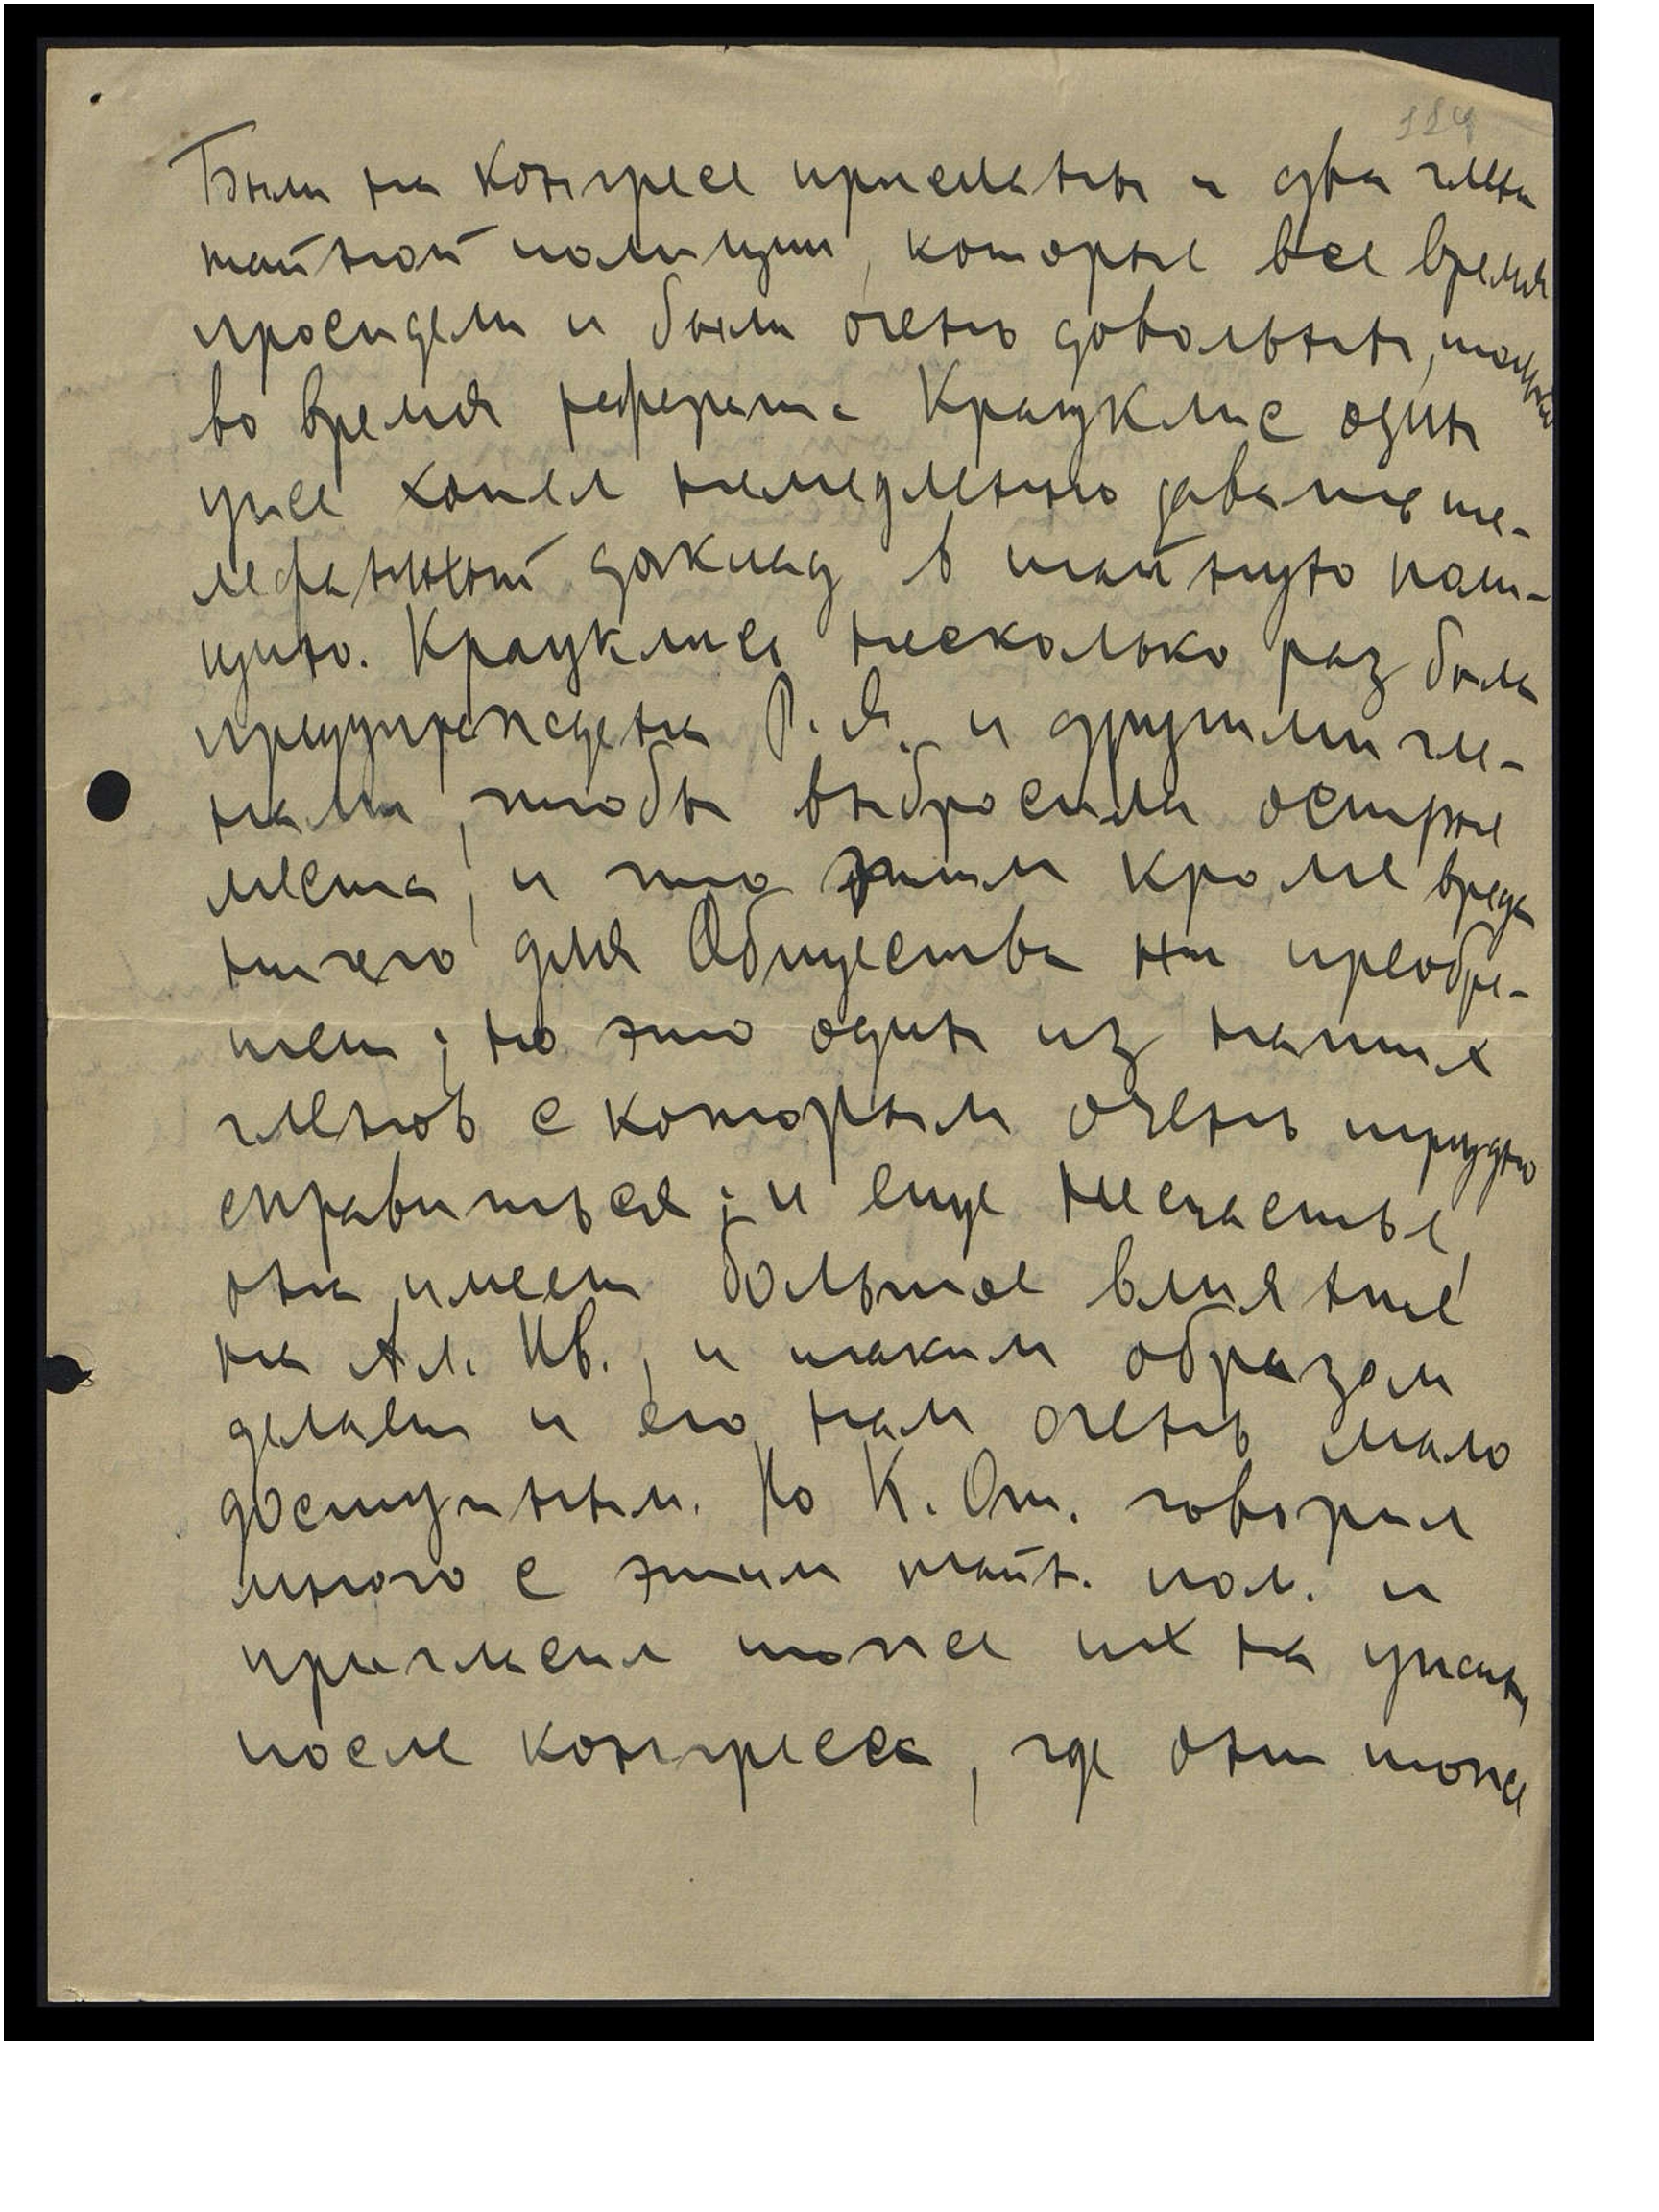 114
Были на конгресе присланы и два члена
тайной полиции, которые все время
просидели и были очень довольны, только
во время реферата Крауклис один
уже хотел немедленно давать те-
лефонный доклад в тайную поли-
цию. Крауклис несколько раз была
предупреждена Р. Я. и другими чле-
нами, чтобы выбросила острые
места, и что этим кроме вреда
ничего для Общества не преобре-
тет; но это один из наших
членов с которым очень трудно
справиться; и еще несчастье,
она имеет большое влияние
на Ал. Ив., и таким образом
делает и его нам очень мало
доступным. Но К. От. говорил
много с этим тайн. пол. и
пригласил тоже их на ужин,
после конгресса, где они тоже